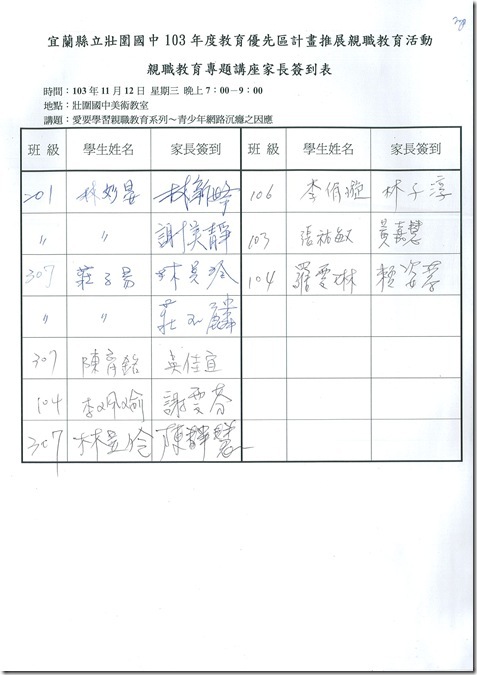 宜蘭縣立壯圍國中 103 年度教育優先區計畫推展親職教育活動
親職教育專題講座家長簽到表
時間：103 年 11 月 12 日 星期三 晚上 7：00－9：00
地點：壯圍國中美術教室
講題：愛要學習親職教育系列～青少年網路沉癮之因應
班 級 學生姓名 家長簽到 班 級 學生姓名 家長簽到
201 林妙晏 106 李侑璇 林子淳
〃 〃 謝美靜 103 張祐敏 黃嘉慧
307 莊子易 林美玲 104 羅雯琳 賴姿蓉
〃 〃 莊 麟
307 陳育銘 吳佳宜
104 李佩瑜 謝雯芬
307 林昱伶 陳靜慧